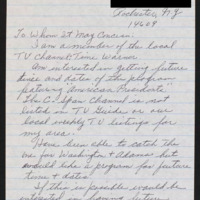 Rochester, N.Y.
14609
To Whom It May Concern:
I am a member of the local
TV Channel Time Warner
Am interested in getting future
dates and dates of this program
featuring American Presidents"
The C-Span channel is not
listed in TV Guide or our
local weekly TV listings for
my area.
Have been able to catch the
ones for Washington + Adams but
would like a program for future
times + dates
If this is possible would be
interested in